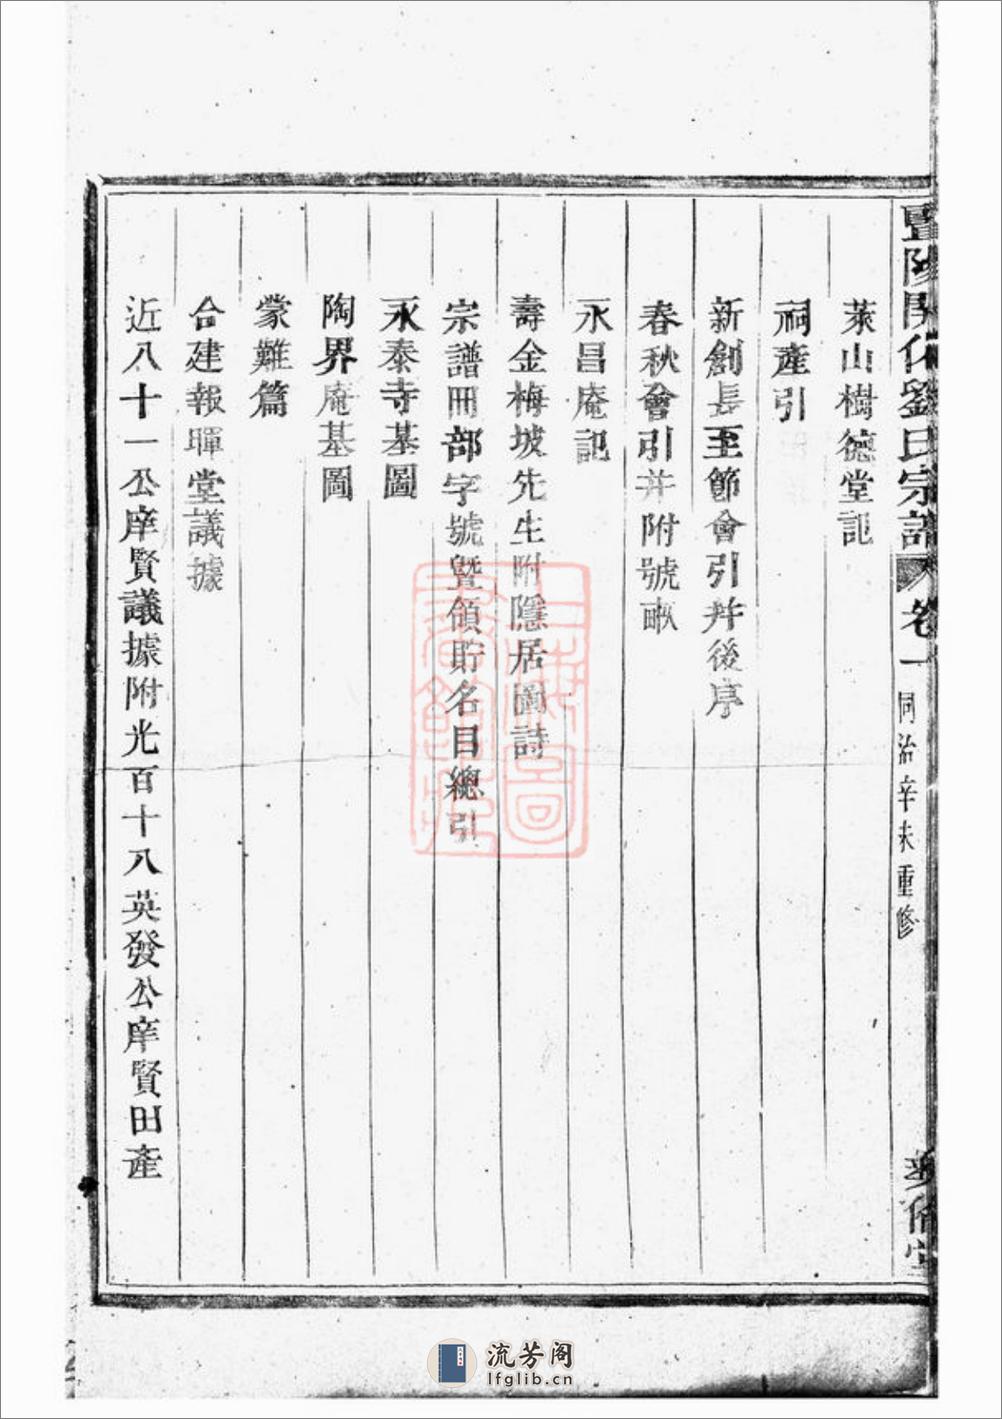 暨陽開化劉氏宗譜 卷一 同治辛未重修
萊山樹德堂記
祠產引
新創長至節會引并後序
春秋會引并附號畝
永昌庵記
壽金梅坡先生附隱居圖詩
宗譜冊部字號暨領貯名目總引
永泰寺基圖
陶界庵基圖
蒙難篇
合建報暉堂議據
近八十一公庠賢議據附光百十八英發公庠賢田產
上海圖書館藏
流芳阁
lfglib.cn